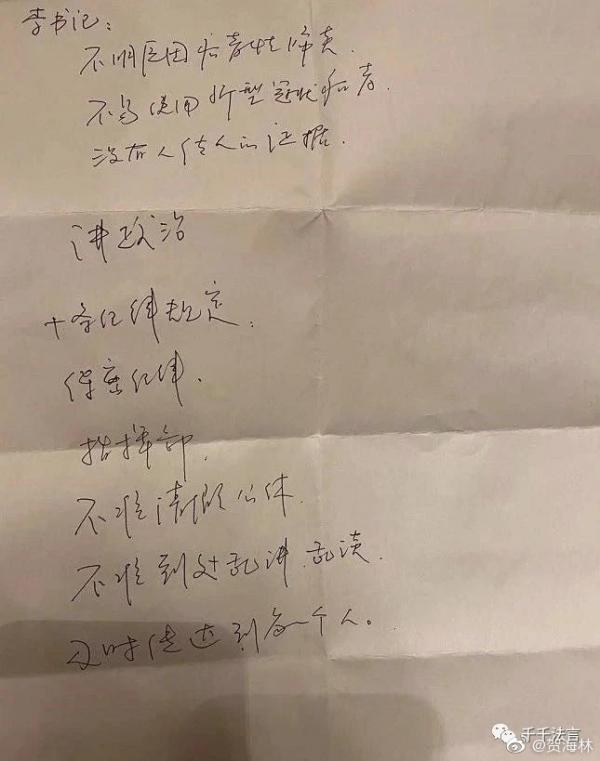 李书记:
不明原因病毒性肺炎.
不与使用新型冠状病毒.
没有人传人的证据.
讲政治
十条纪律规定.
保密纪律.
指挥部.
不准请假公休.
不准到处乱讲.乱谈.
及时传达到每一个人。
千千法言
@贺海林